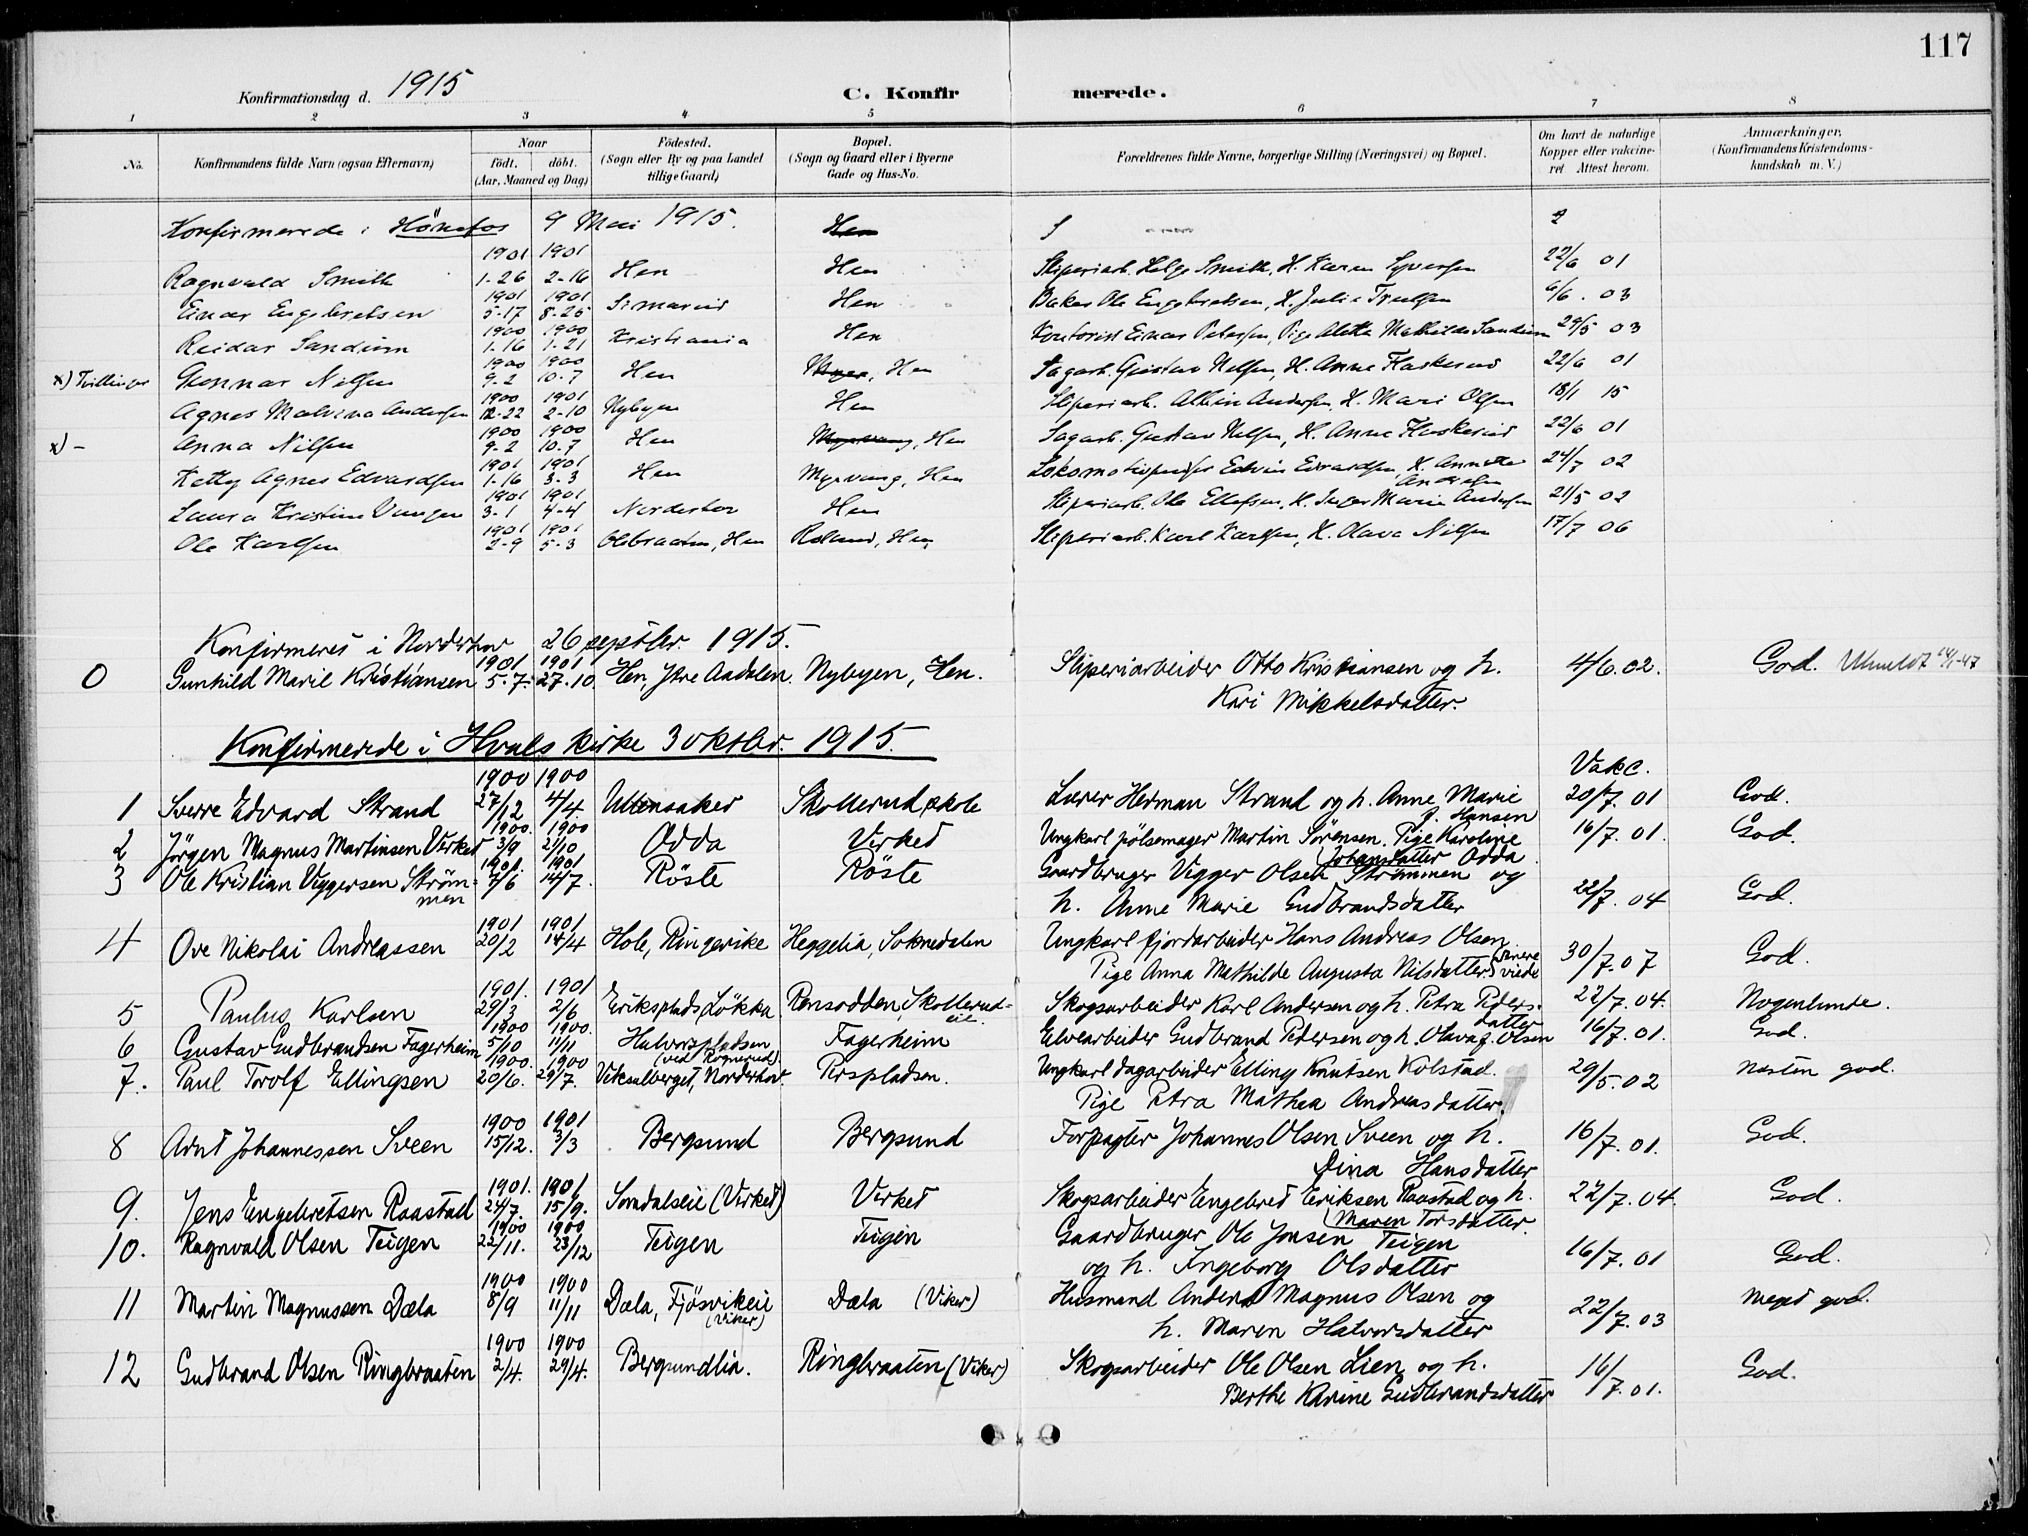 117
Konfirmationsdag d. 1915 C. Konfirmerede.
1 2 3 4 5 6 7 8
No. Konfirmandens fulde Navn (ogsaa Efternavn) Naar født. døbt. (Aar, Maaned og Dag) Fødested. (Sogn eller By og paa Landet tillige Gaard) Bopæl. (Sogn og Gaard eller i Byerne Gade og Hus-No. Forældrenes fulde Navne, borgerlige Stilling (Næringsvei) og Bopæl. Om havt de naturlige Kopper eller vakcineret Attest herom. Anmærkninger, (Konfirmandens Kristendomskundskab m. V.)
Konfirmerede i Hönefos 9 Mai 1915. Hen
1901 1901
Ragnvald Smith 1-26 2-16 Hen Hen Sliperiarb. Helge Smith, H. Karen Syversen 22/6 01
1901 1901
Einar Engebretsen 5-17 8-25 Hen Baker Ole Engebretsen, H. Julie Trulsen 6/6. 03
1900 1900
Reidar Sandum 1-16 1-21 Kristiania Hen Kontorist Einar Petersen, Pige Aletta Mathilde Sandum 29/5 03
1900 1900
x) Tvillinger Gunnar Nilsen 9-2 10-7 Hen Hen Sagarb. Gustav Nilsen, H. Anne Flaskerud 22/6 01
1900 1901
Agnes Malvina Andersen 12-22 2-10 Nybyen Hen Sliperiarb. Albin Andersen, H. Mari Olsen 18/1 15
1900 1900
x) - Anna Nilsen 9-2 10-7 Hen Myrvang, Hen Sagarb. Gustav Nilsen, H. Anne Flaskerud 22/6 01
1901 1901
Ketty Agnes Edvardsen 1-16 3-3 Hen Myrvang, Hen Edvin Edvardsen, H. Annette Andersen 24/7 02
1901 1901
Laura Kristine 3-1 4-4 Norderhov Hen Sliperiarb. Ole Ellefsen, H. Inger Marie Andersen 21/5 02
1901 1901
Ole Karlsen 2-9 5-3 Olebraaten, Hen Roland, Hen Sliperiarb. Karl Karlsen, H. Olava Nilsen 17/7 06
Konfirmeret i Norderhov 26 septbr. 1915.
1901 1901
0 Gunhild Marie Kristiansen 5-7- 27-10. Hen, Ytre Aadalen. Nybyen, Hen. Sliperiarbeider Otto Kristiansen og h. 4/6.02. God.
Kari Mikkelsdatter.
Konfirmerede i Hvals kirke 3 oktbr. 1915.
1900 1900 Vakc.
1 Sverre Edvard Strand 27/12 4/4. Ullensaker Skollerud skole Lærer Herman Strand og h. Anne Marie 20/7. 01 God.
f. Hansen
1900. 1900
2 Jörgen Magnus Martinsen Virket 3/9 21/10 Odda Virket Ungkarl pölsemager Martin Sörensen. Pige Karoline 16/7. 01. God.
Johansdatter Odda
1901. 1901
3 Ole Kristian Viggersen Ström- 9/6 14/7. Röste Röste Gaardbruger Vigger Olsen Strömmen og
men h. Anne Marie Gudbrandsdatter 22/7. 04 God.
1901 1901
4 Ove Nikolai Andreassen 20/2 14/4 Hole, Ringerike Heggelia, Soknedalen Ungkarl fjordarbeider Hans Andreas Olsen. 30/7.07 God.
Pige Anna Mathilde Augusta Nilsdatter (senere viede
1901. 1901
5 Paulus Karlsen 29/3 2/6 Eriksplads, Lökka Rensodden, Skollerud- Skogsarbeider Karl Andersen og h. Petra Peders- 22/7. 04. Nogenlunde.
eie. datter
1900 1900.
6 Gustav Gudbrandsen Fagerheim 5/10 11/11 Halvorspladsen Fagerheim Elvearbeider Gudbrand Pedersen og h. Olava f. Olsen 16/7. 01. God.
(ved Rognerud)
1900. 1900
7. Paul Torolf Ellingsen 20/6. 29/7. Viksalberget, Norderhov. Perspladsen. Ungkarl dagarbeider Elling Knutsen Kolstad. 29/5. 02 næsten god.
Pige Petra Mathea Andreasdatter.
1900 1901
8 Arnt Johannessen Sveen 15/12. 3/3 Bergsund Bergsund Forpagter Johannes Olsen Sveen og h. 16/7. 01. God.
Dina Hansdatter
1901. 1901
9. Jens Engebretsen Raastad 24/7. 15/9. Somdalseie (Virket) Virket Skogsarbeider Engebret Eriksen Raastad og h. 22/7. 04. God.
Maren Torsdatter.
1900 1900
10. Ragnvald Olsen Teigen 22/11. 23/12 Teigen Teigen Gaardbruger Ole Jonsen Teigen
og h. Ingeborg Olsdatter 16/7. 01 God.
1900 1900
11 Martin Magnussen Dæla 8/9 11/11 Dæla, Fjösvikeie Dæla (Viker) Husmand Anders Magnus Olsen og meget god.
(Viker) h. Maren Halvorsdatter 22/7. 03
1900 1900
12 Gudbrand Olsen Ringbraaten 2/4. 29/4. Bergsundlia. Ringbraaten (Viker) Skogsarbeider Ole Olsen Lien og h. 16/7. 01. God.
Berthe Karine Gudbrandsdatter